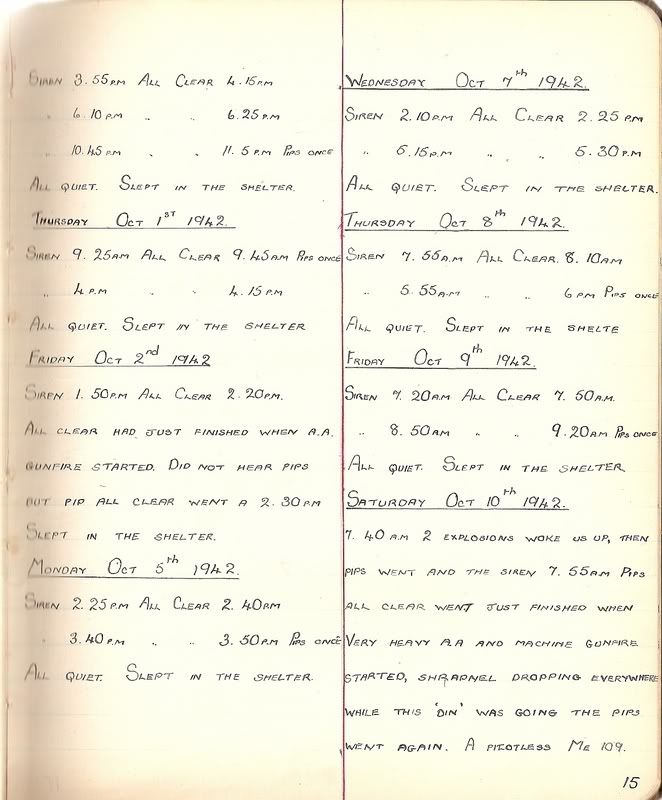 SIREN 3.55PM ALL CLEAR 4.15PM
" 6.10PM " " 6.25PM
" 10.45PM " " 11.5PM PIPS ONCE
ALL QUIET. SLEPT IN THE SHELTER.
THURSDAY OCT 1ST 1942.
SIREN 9.25AM ALL CLEAR 9.45AM PIPS ONCE
" 4PM " " 4.15PM
ALL QUIET. SLEPT IN THE SHELTER
FRIDAY OCT 2nd 1942
SIREN 1.50PM ALL CLEAR 2.20PM.
ALL CLEAR HAD JUST FINISHED WHEN A.A.
GUNFIRE STARTED. DID NOT HEAR PIPS
BUT PIP ALL CLEAR WENT A 2.30PM
SLEPT IN THE SHELTER.
MONDAY OCT 5th 1942.
SIREN 2.25PM ALL CLEAR 2.40PM
" 3.40PM " " 3.50PM PIPS ONCE
ALL QUIET. SLEPT IN THE SHELTER.
WEDNESDAY OCT 7th 1942.
SIREN 2.10PM ALL CLEAR 2.25PM
" 5.15PM " " 5.30P.M
ALL QUIET. SLEPT IN THE SHELTER.
THURSDAY OCT 8th 1942.
SIREN 7.55A.M ALL CLEAR. 8.10AM
" 5.55A.M " " 6PM PIPS ONCE
ALL QUIET. SLEPT IN THE SHELTE
FRIDAY OCT 9th 1942.
SIREN 7.20AM ALL CLEAR 7.50A.M.
" 8.50AM " " 9.20AM PIPS ONCE
ALL QUIET. SLEPT IN THE SHELTER
SATURDAY OCT 10th 1942.
7.40A.M 2 EXPLOSIONS WOKE US UP, THEN
PIPS WENT AND THE SIREN 7.55AM PIPS
ALL CLEAR WENT JUST FINISHED WHEN
VERY HEAVY A.A AND MACHINE GUNFIRE
STARTED, SHRAPNEL DROPPING EVERYWHERE
WHILE THIS 'DIN' WAS GOING THE PIPS
WENT AGAIN. A PILOTLESS ME 109.
15